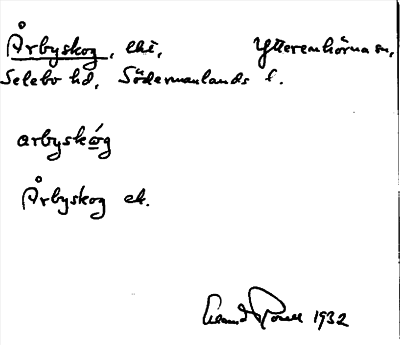 Årbyskog, lht, Ytterenhörna sn,
Selebo hd, Södermanlands l.
arbyskóg
Årbyskog ek.
1932